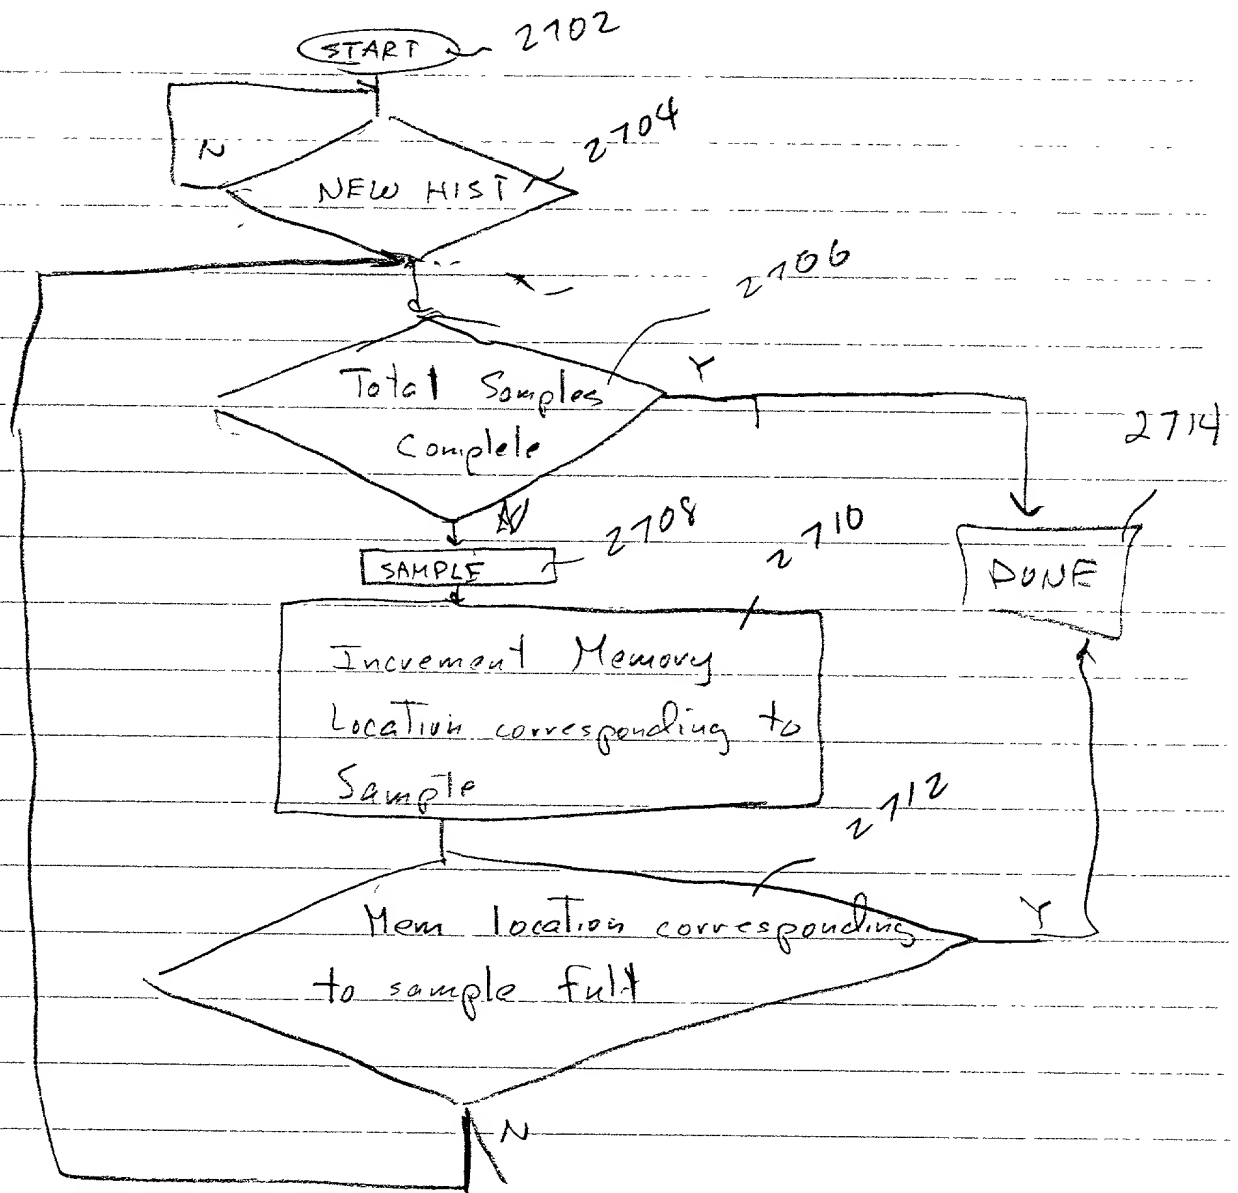 START 2702
N
2704
NEW HIST
2706
Y
Total Samples
Complete
2714
N
2708
2710
SAMPLE
DONE
Increment Memory
Location corresponding to
Sample
2712
Mem location corresponding
Y
to sample full
N